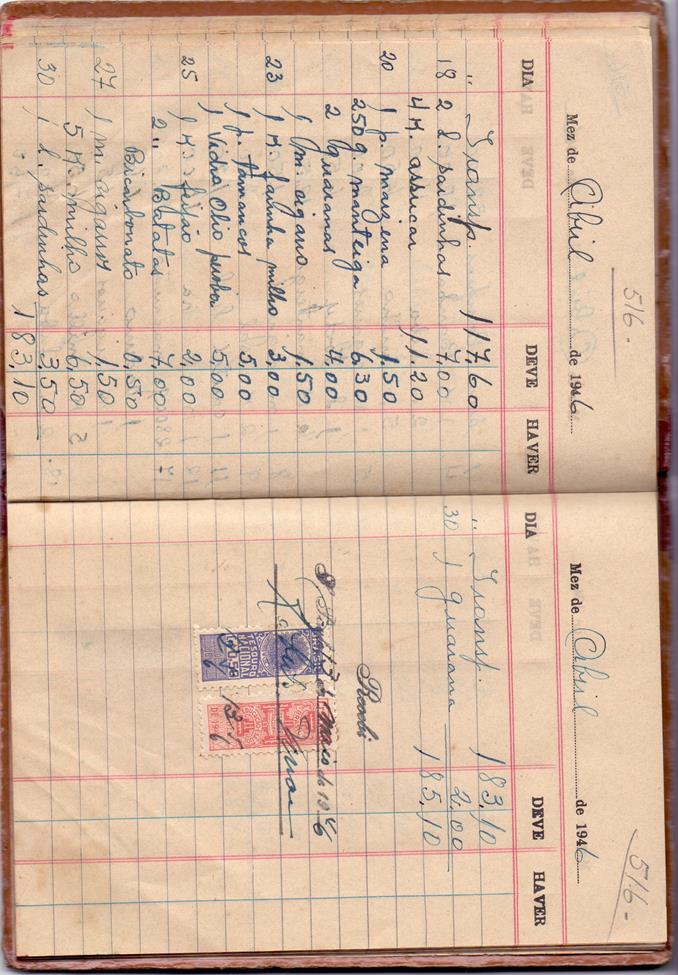 516-
Mez de Abril de 1946
DIA DEVE HAVER
" Transp. 117,60
18 2 l. sardinhas 7,00
4 K. assucar 11,20
20 1 p. mayzena 1,50
250 g. manteiga 6,30
2 guaranas 4,00
1 m. cigarro 1,50
23 1 K. farinha milho 3,00
1 p. tamancos 5,00
1 Vidro Olio peroba 5,00
25 1 K. feijão 2,00
2 " Batatas 7,00
Bicarbonato 0,50
27 1 m. cigarro 1,50
5 K. milho 6,50
30 1 l. sardinhas 3,50
183,10
516-
Mez de Abril de 1946
DIA DEVE HAVER
" Transp. 183,10
30 1 guarana 2,00
185,10
Recebi
Maio de 1946
TESOURO
NACIONAL